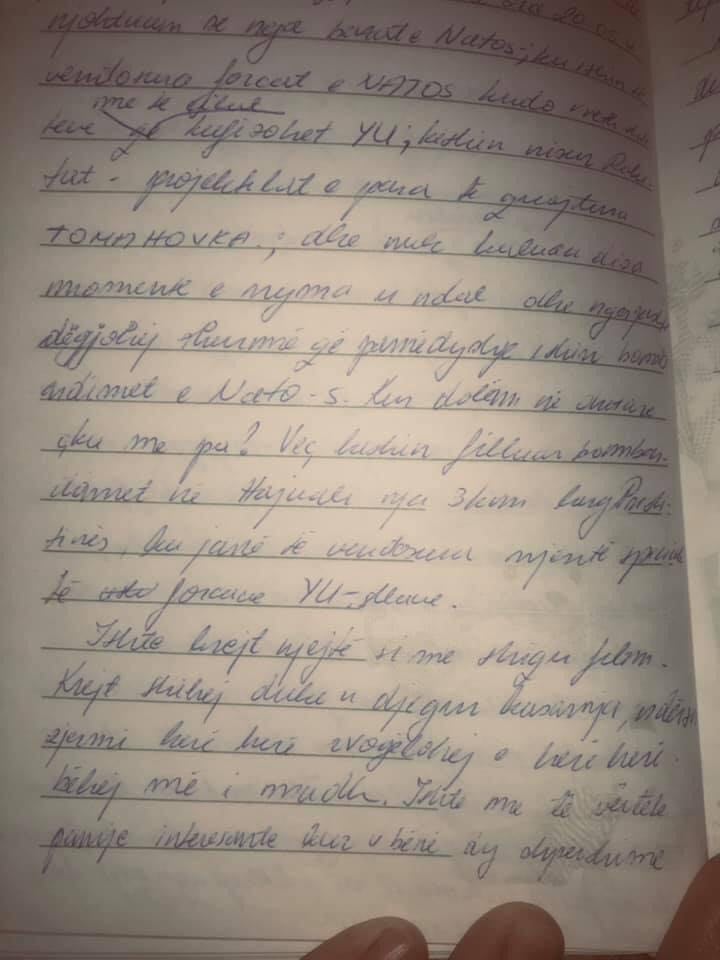 njoftuam se nga bazat e Natos; ku ishin të
vendosura forcat e NATOS kudo rreth
me të cilat
teve që kufizohet YU; kishin nisur
tat - projektilat e para të quajtura
TOMAHOVKA.; dhe nuk kaluan disa
momente e rryma u ndal dhe
dëgjohej shurmë që pamëdyshje ishin bomba
rdimet e Nato-s. Kur dolëm në
çku me pa? Veç kishin filluar bombar-
dimet në Hajvali nja 3km larg Prish-
tinës, ku janë të vendosura njësitë speciale
të forcave YU-sllave.
Ishte krejt njejtë si me shiqu film.
Krejt shihej duke u djegur kasarnja, ndërsa
zjarmi herë herë zvogëlohej e herë herë
bëhej më i madh. Ishte me të vërtetë
pamje interesante kur u bënë dy